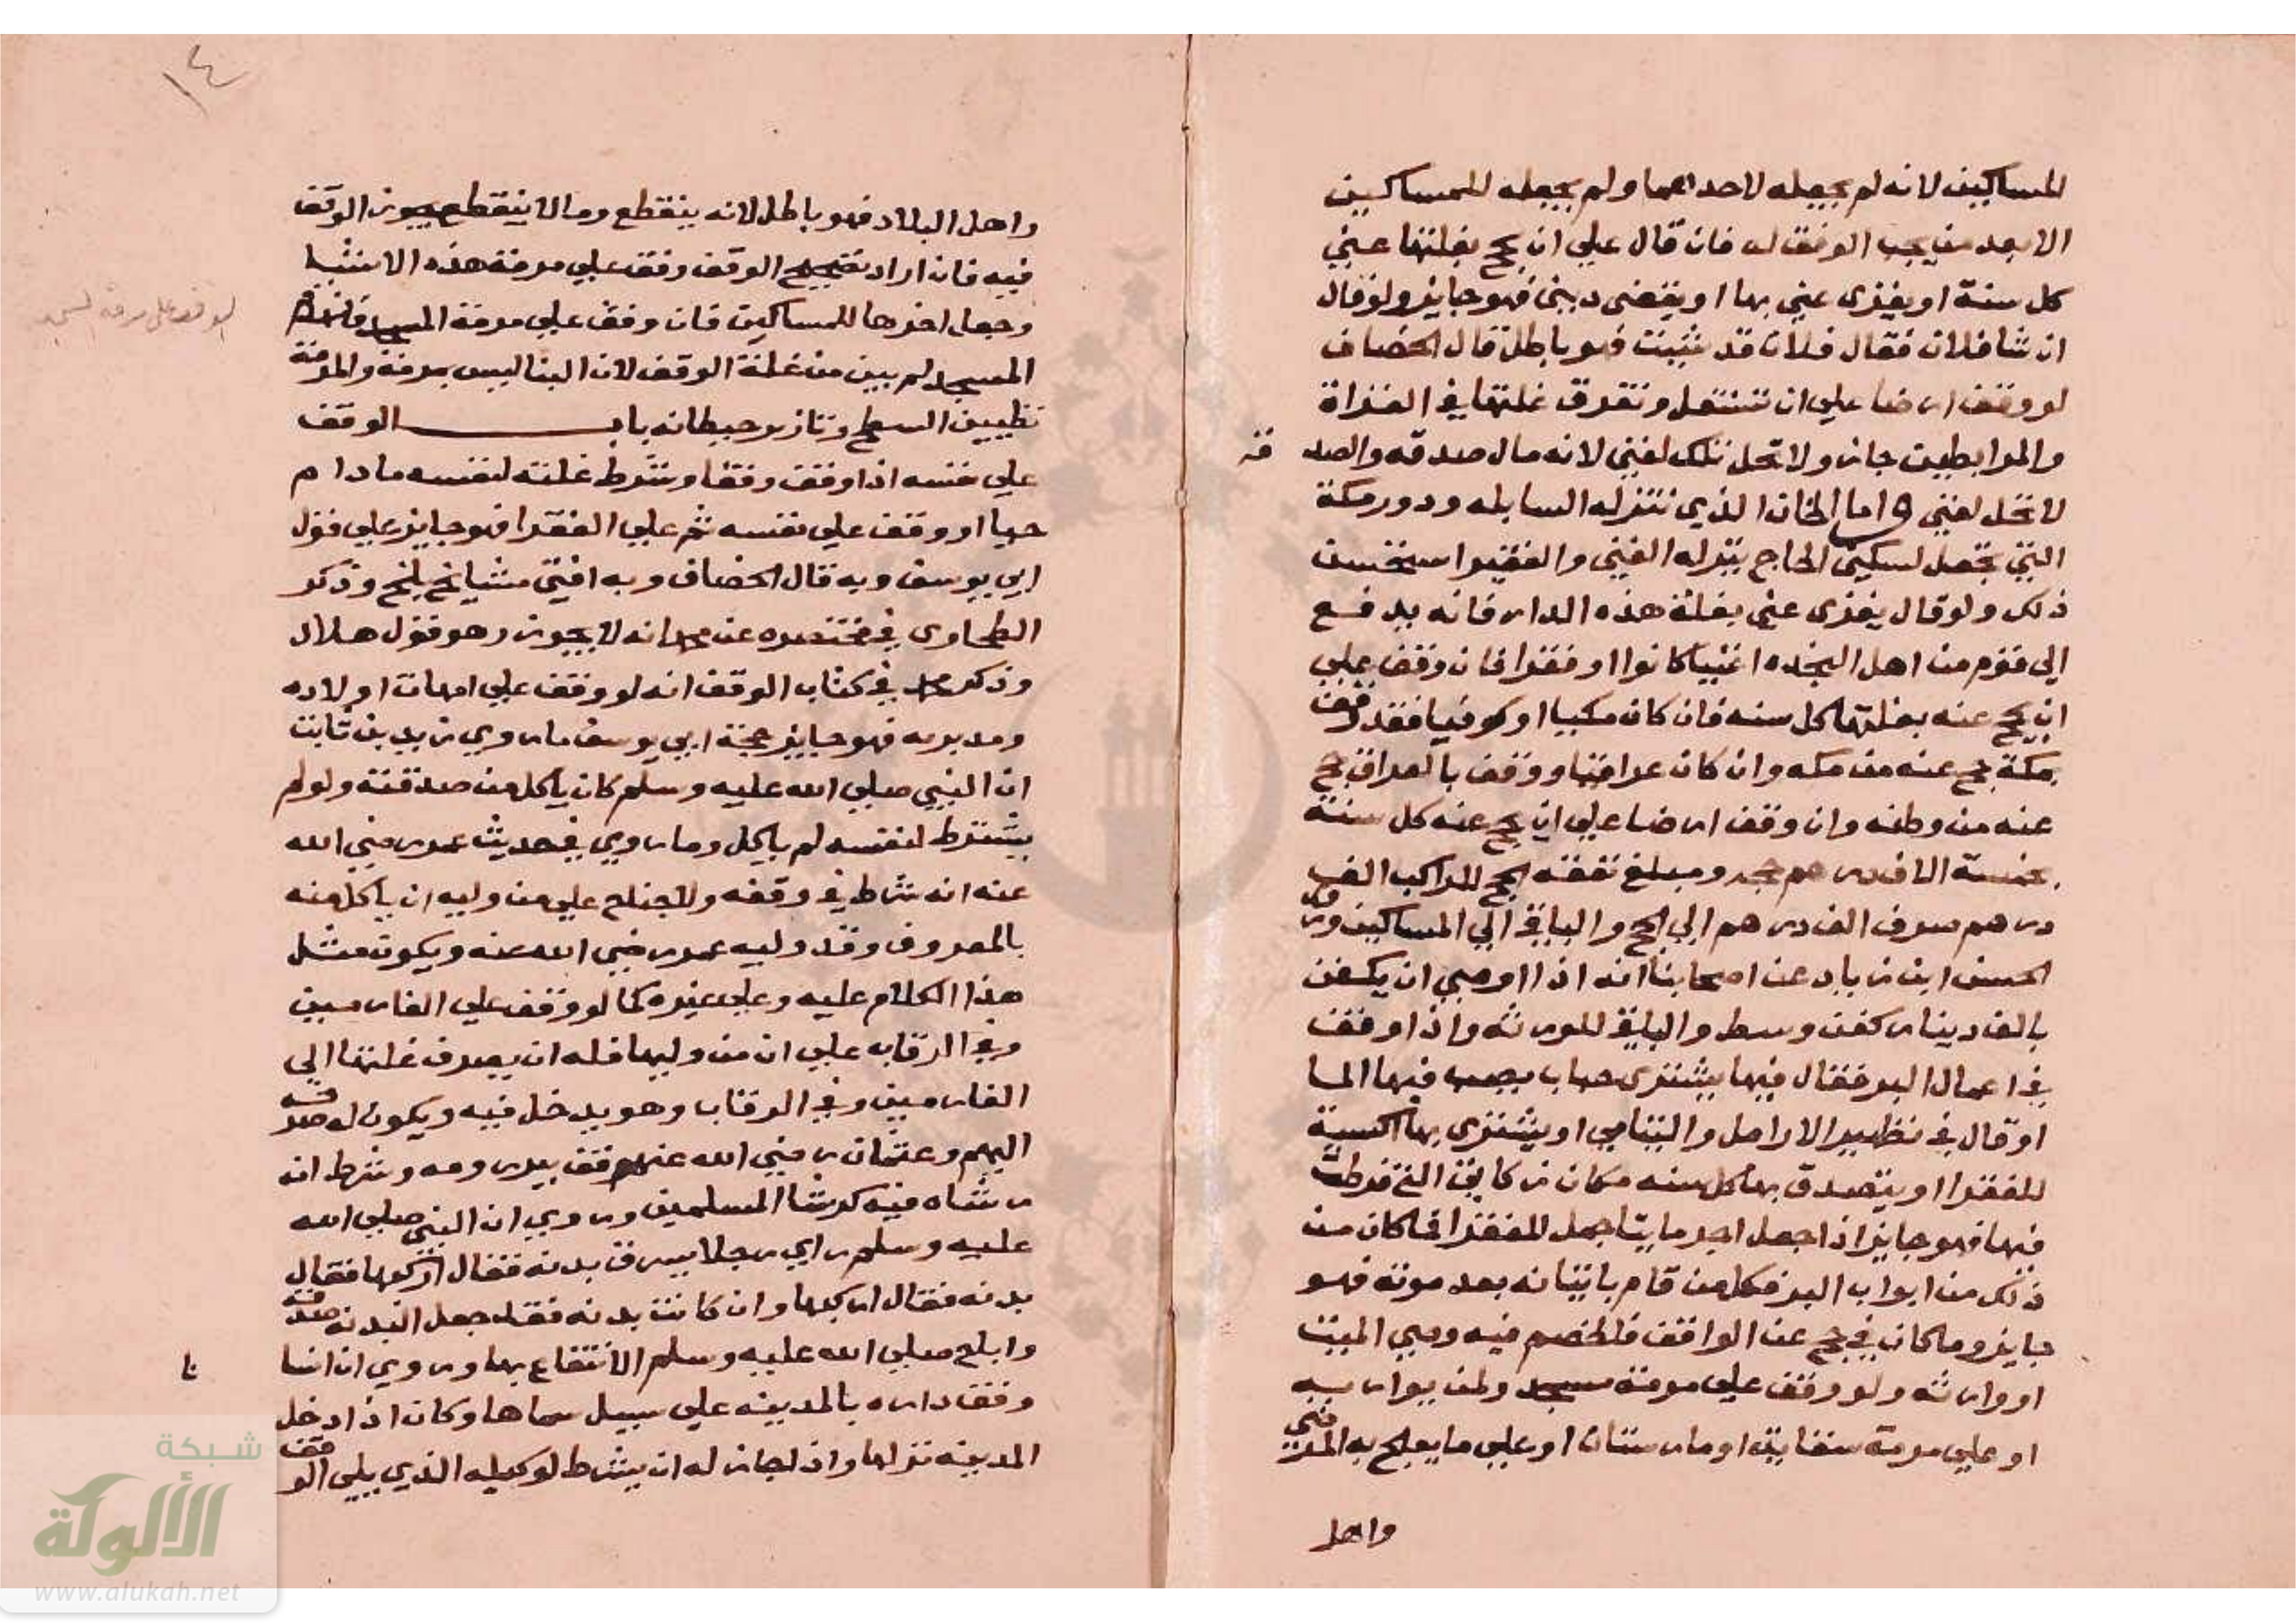 للمساكين لانه لم يجعله لاحدهما ولم يجعله للمساكين
الا بعد من يجب الوقف له فان قال علي ان يحج بغلتها عني
كل سنة او يغزى عني بها او يقضى ديني فهو جايز ولو قال
ان شا فلان فقال فلان قد شيت فهو باطل قال الخصاف
لو وقف ارضا علي ان تستغل وتفرق غلتها في الغزاة
والمرابطين جاز ولا تحل تلك لغني لانه مال صدقه والصد قة
لا تحل لغني واما الخان الذي تنزله السابله ودور مكة
التي تجعل لسكني الحاج ينزله الغني والفقير استحسن
ذلك ولو قال يغزى عني بغلة هذه الدار فانه يدفع
الي قوم من اهل النجده اغنيا كانوا او فقرا فان وقف علي
ان يحج عنه بغلتها كل سنه فان كان مكيا او كوفيا فقد وقف
بمكة حج عنه من مكه وان كان عراقيا ووقف بالعراق حج
عنه من وطنه وان وقف ارضا علي ان يحج عنه كل سنة
بخمسة الاف درهم حجه ومبلغ نفقه الحج للراكب الف
درهم صرف الف درهم الي الحج والباقي الي المساكين وروي
الحسن ابن زياد عن اصحابنا انه اذا اوصي ان يكفن
بالف دينار كفن وسط والباقي للورثه واذا وقف
في اعمال البر فقال فيها يشترى حباب يصب فيها الما
او قال في تطهير الارامل واليتامي او يشترى بها اكسية
للفقرا او يتصدق بها كل سنه مكان زكاتي التي فرطت
فيها فهو جايز اذا جعل اخر ما يتاجمل للفقرا فما كان من
ذلك من ابواب البر فكل من قام باتيانه بعد موته فهو
جايز وما كان في حج عن الواقف فالخصم فيه وصي الميت
او وارثه ولو وقف علي مرمة مسجد ولمن يوازيه
او علي مرمة سقايه او مارستان او علي ما يعالج به المرضي
واهل
١٤
واهل البلاد فهو باطل لانه ينقطع وما لا ينقطع يجوز الوقف
فيه فان اراد تصحيح الوقف وقف علي مرمة هذه الاشيا
وجعل اخرها للمساكين فان وقف علي مرمة المسجد فانهدم
المسجد لم يبن من غلة الوقف لان البنا ليس بمرمة والمرمة
تطيين السطح وتازير حيطانه باب الوقف
علي نفسه اذا وقف وقفا وشرط غلته لنفسه ما دام
حيا او وقف علي نفسه ثم علي الفقرا فهو جايز علي قول
ابي يوسف وبه قال الخصاف وبه افتي مشايخ بلخ وذكر
الطحاوى في مختصره عن محمد انه لا يجوز وهو قول هلال
وذكر محمد في كتاب الوقف انه لو وقف علي امهات اولاده
ومدبريه فهو جايز حجة ابي يوسف ما روي زيد بن ثابت
ان النبي صلي الله عليه وسلم كان ياكل من صدقته ولو لم
يشترط لنفسه لم ياكل وما روي في حديث عمر رضي الله
عنه انه شرط في وقفه ولا جناح علي من وليه ان ياكل منه
بالمعروف وقد وليه عمر رضي الله عنه ويكون مثل
هذا الكلام عليه وعلي غيره كما لو وقف علي الغارمين
وفي الرقاب علي ان من وليها فله ان يصرف غلتها الي
الغارمين وفي الرقاب وهو يدخل فيه ويكون له صدقه
اليهم وعثمان رضي الله عنه وقف بير رومه وشرط ان
رشاه فيه كرشا المسلمين وروي ان النبي صلي الله
عليه وسلم راي رجلا يسوق بدنه فقال اركبها فقال
بدنه فقال اركبها وان كانت بدنه فقد جعل البدنه صدقه
واباح صلي الله عليه وسلم الانتفاع بها وروي ان انسا
وقف داره بالمدينه علي سبيل سماها وكان اذا دخل
المدينه نزلها واذا جاز له ان يشرط لوكيله الذي يلي الوقف
الوقف علي مرمة المسجد
شبكة
الألوكة
www.alukah.net